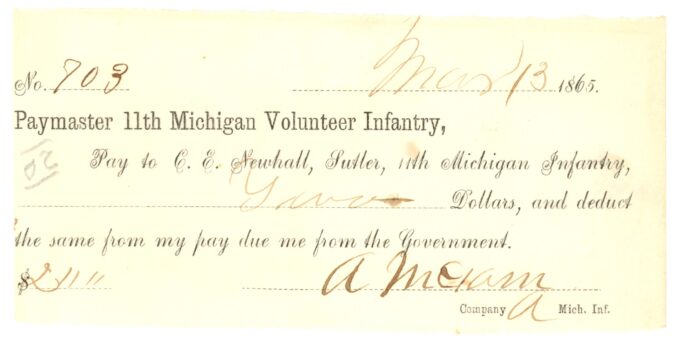 No. 703 Mar 13 1865.
Paymaster 11th Michigan Volunteer Infantry,
Pay to C. E. Newhall, Sutler, 11th Michigan Infantry,
Two Dollars, and deduct
the same from my pay due me from the Government.
$2 " "
A
Company A Mich. Inf.